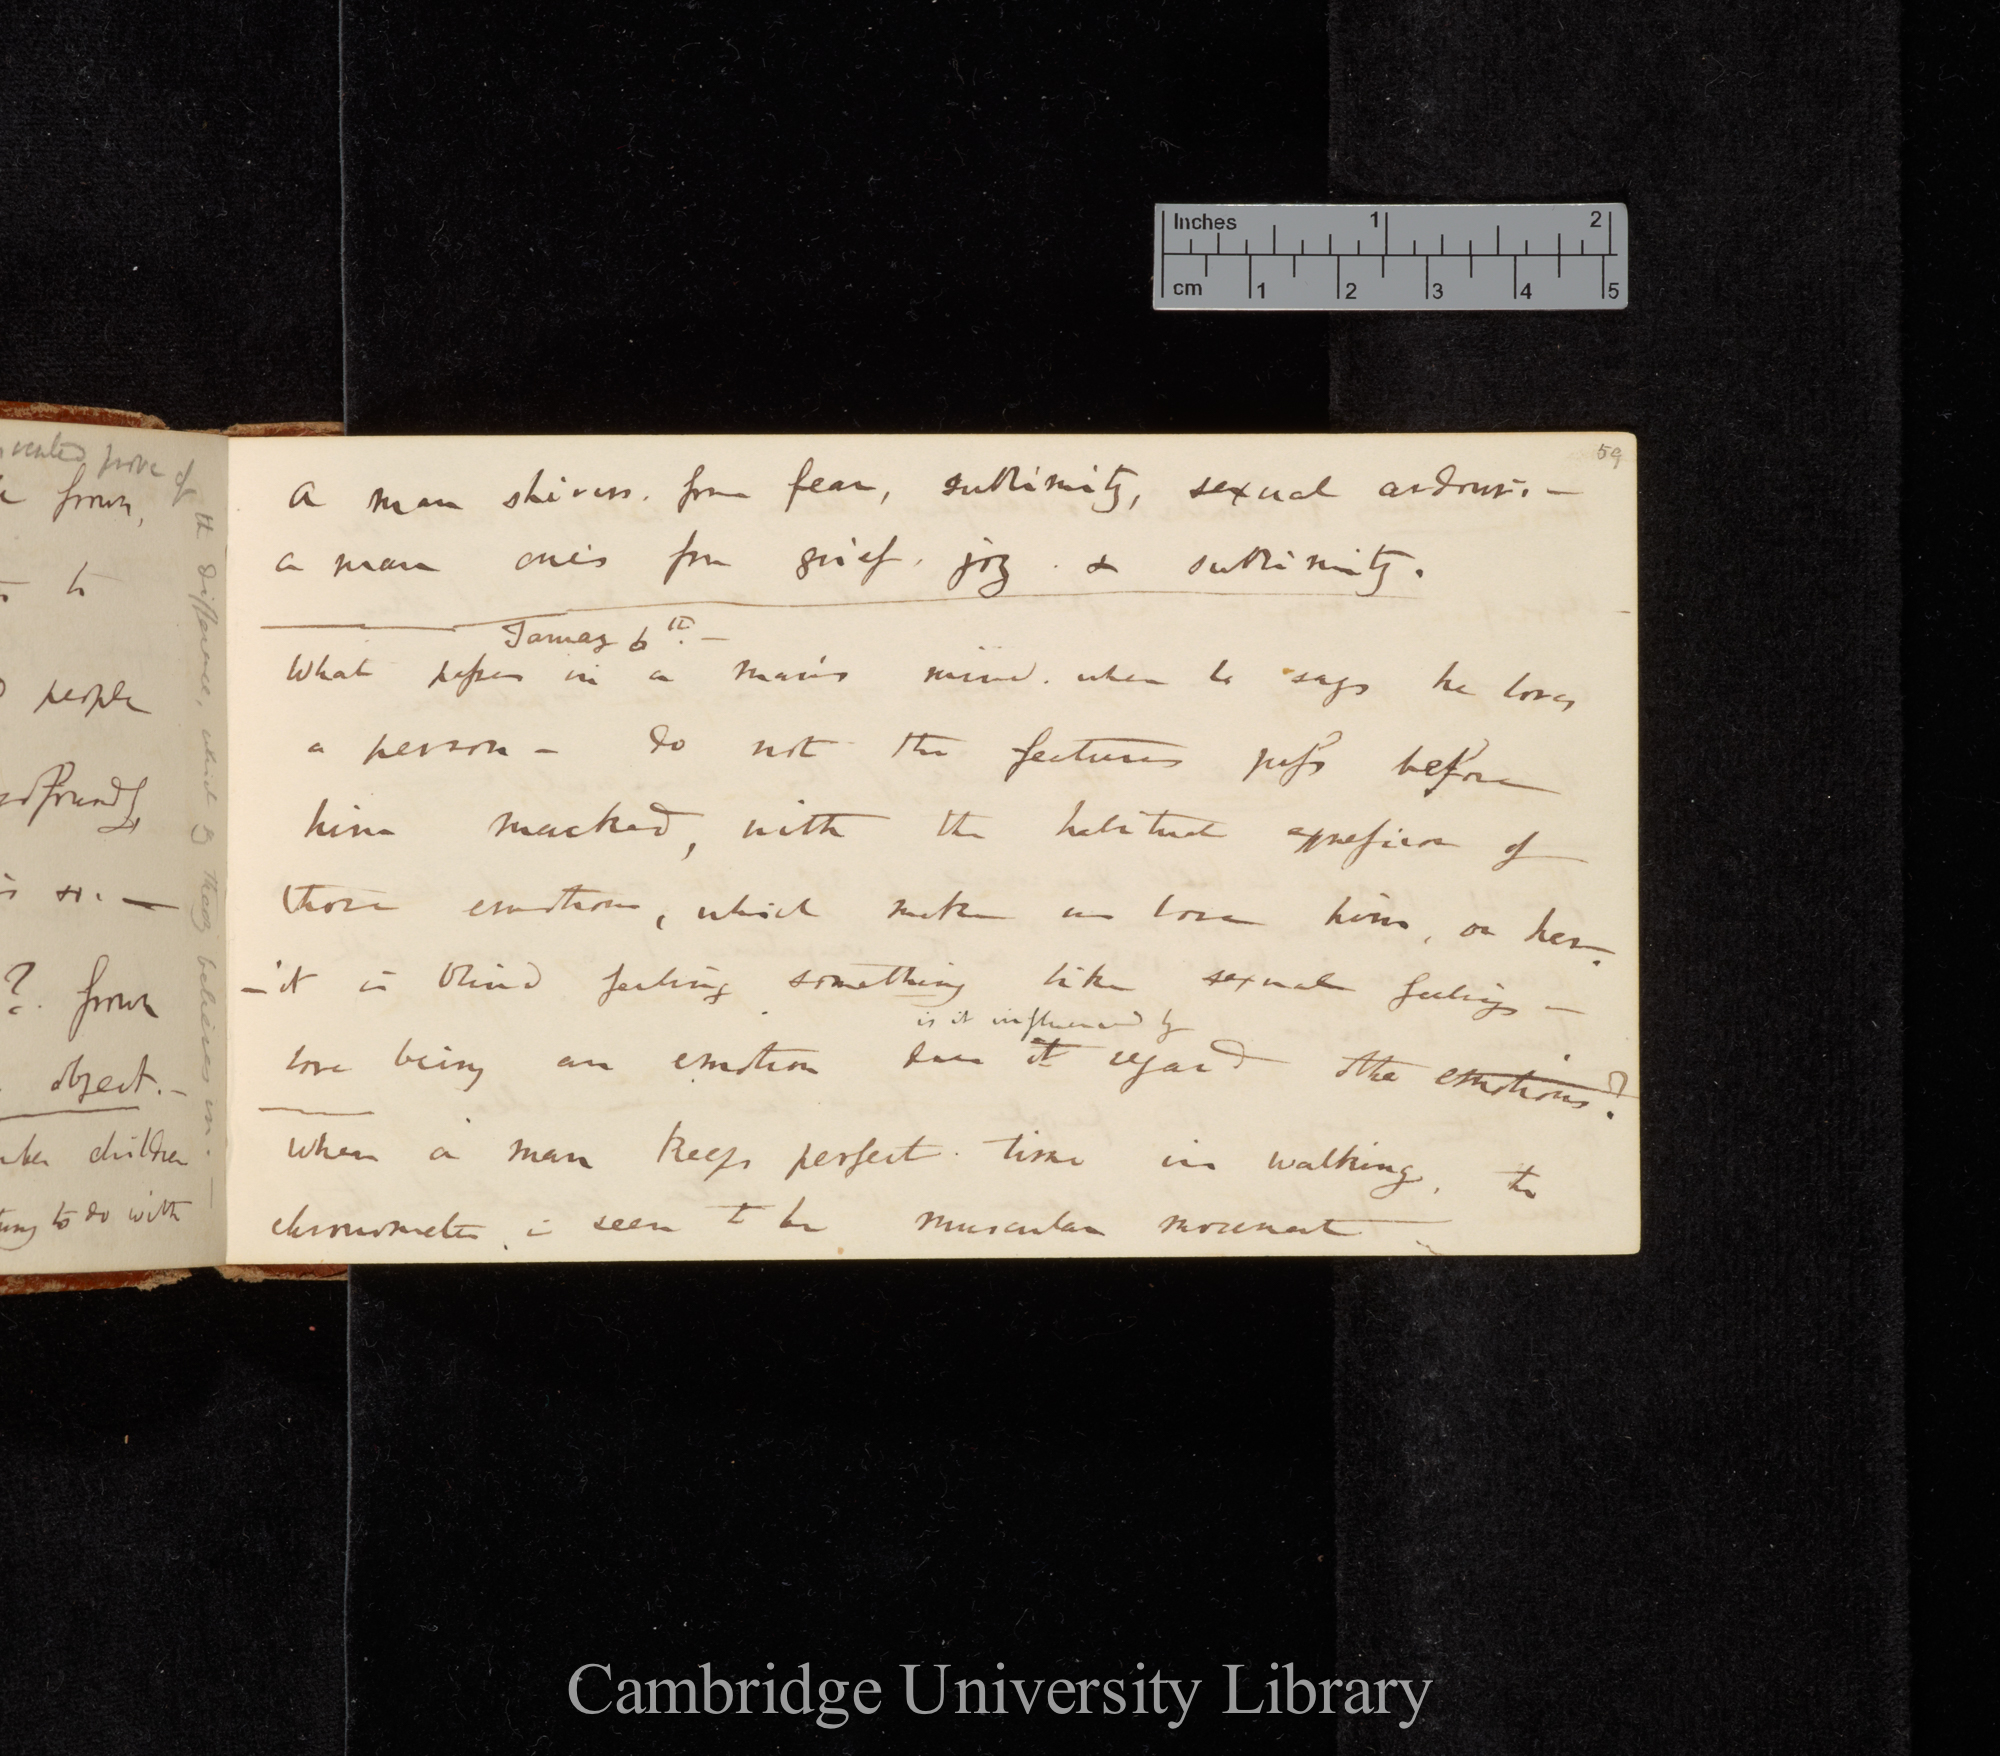 Inches 1 2
cm 1 2 3 4 5
vented prove of
frown,
to
people
profoundly
is so. —
?. frown
object. —
children
to do with
the difference, which they believes in. —
59
A man shivers. from fear, sublimity, sexual ardour. —
a man cries from grief. joy. & sublimity.
January 6th. —
What passes in a man's mind. when he says he loves
a person — do not the features pass before
him marked, with the habitual expression of
those emotions, which make us love him, or her.
— it is blind feeling, something like sexual feelings —
is it influenced by
love being an emotion does it regard other emotions?
When a man keeps perfect time in walking, to
chronometer, is seen to be muscular movement
Cambridge University Library